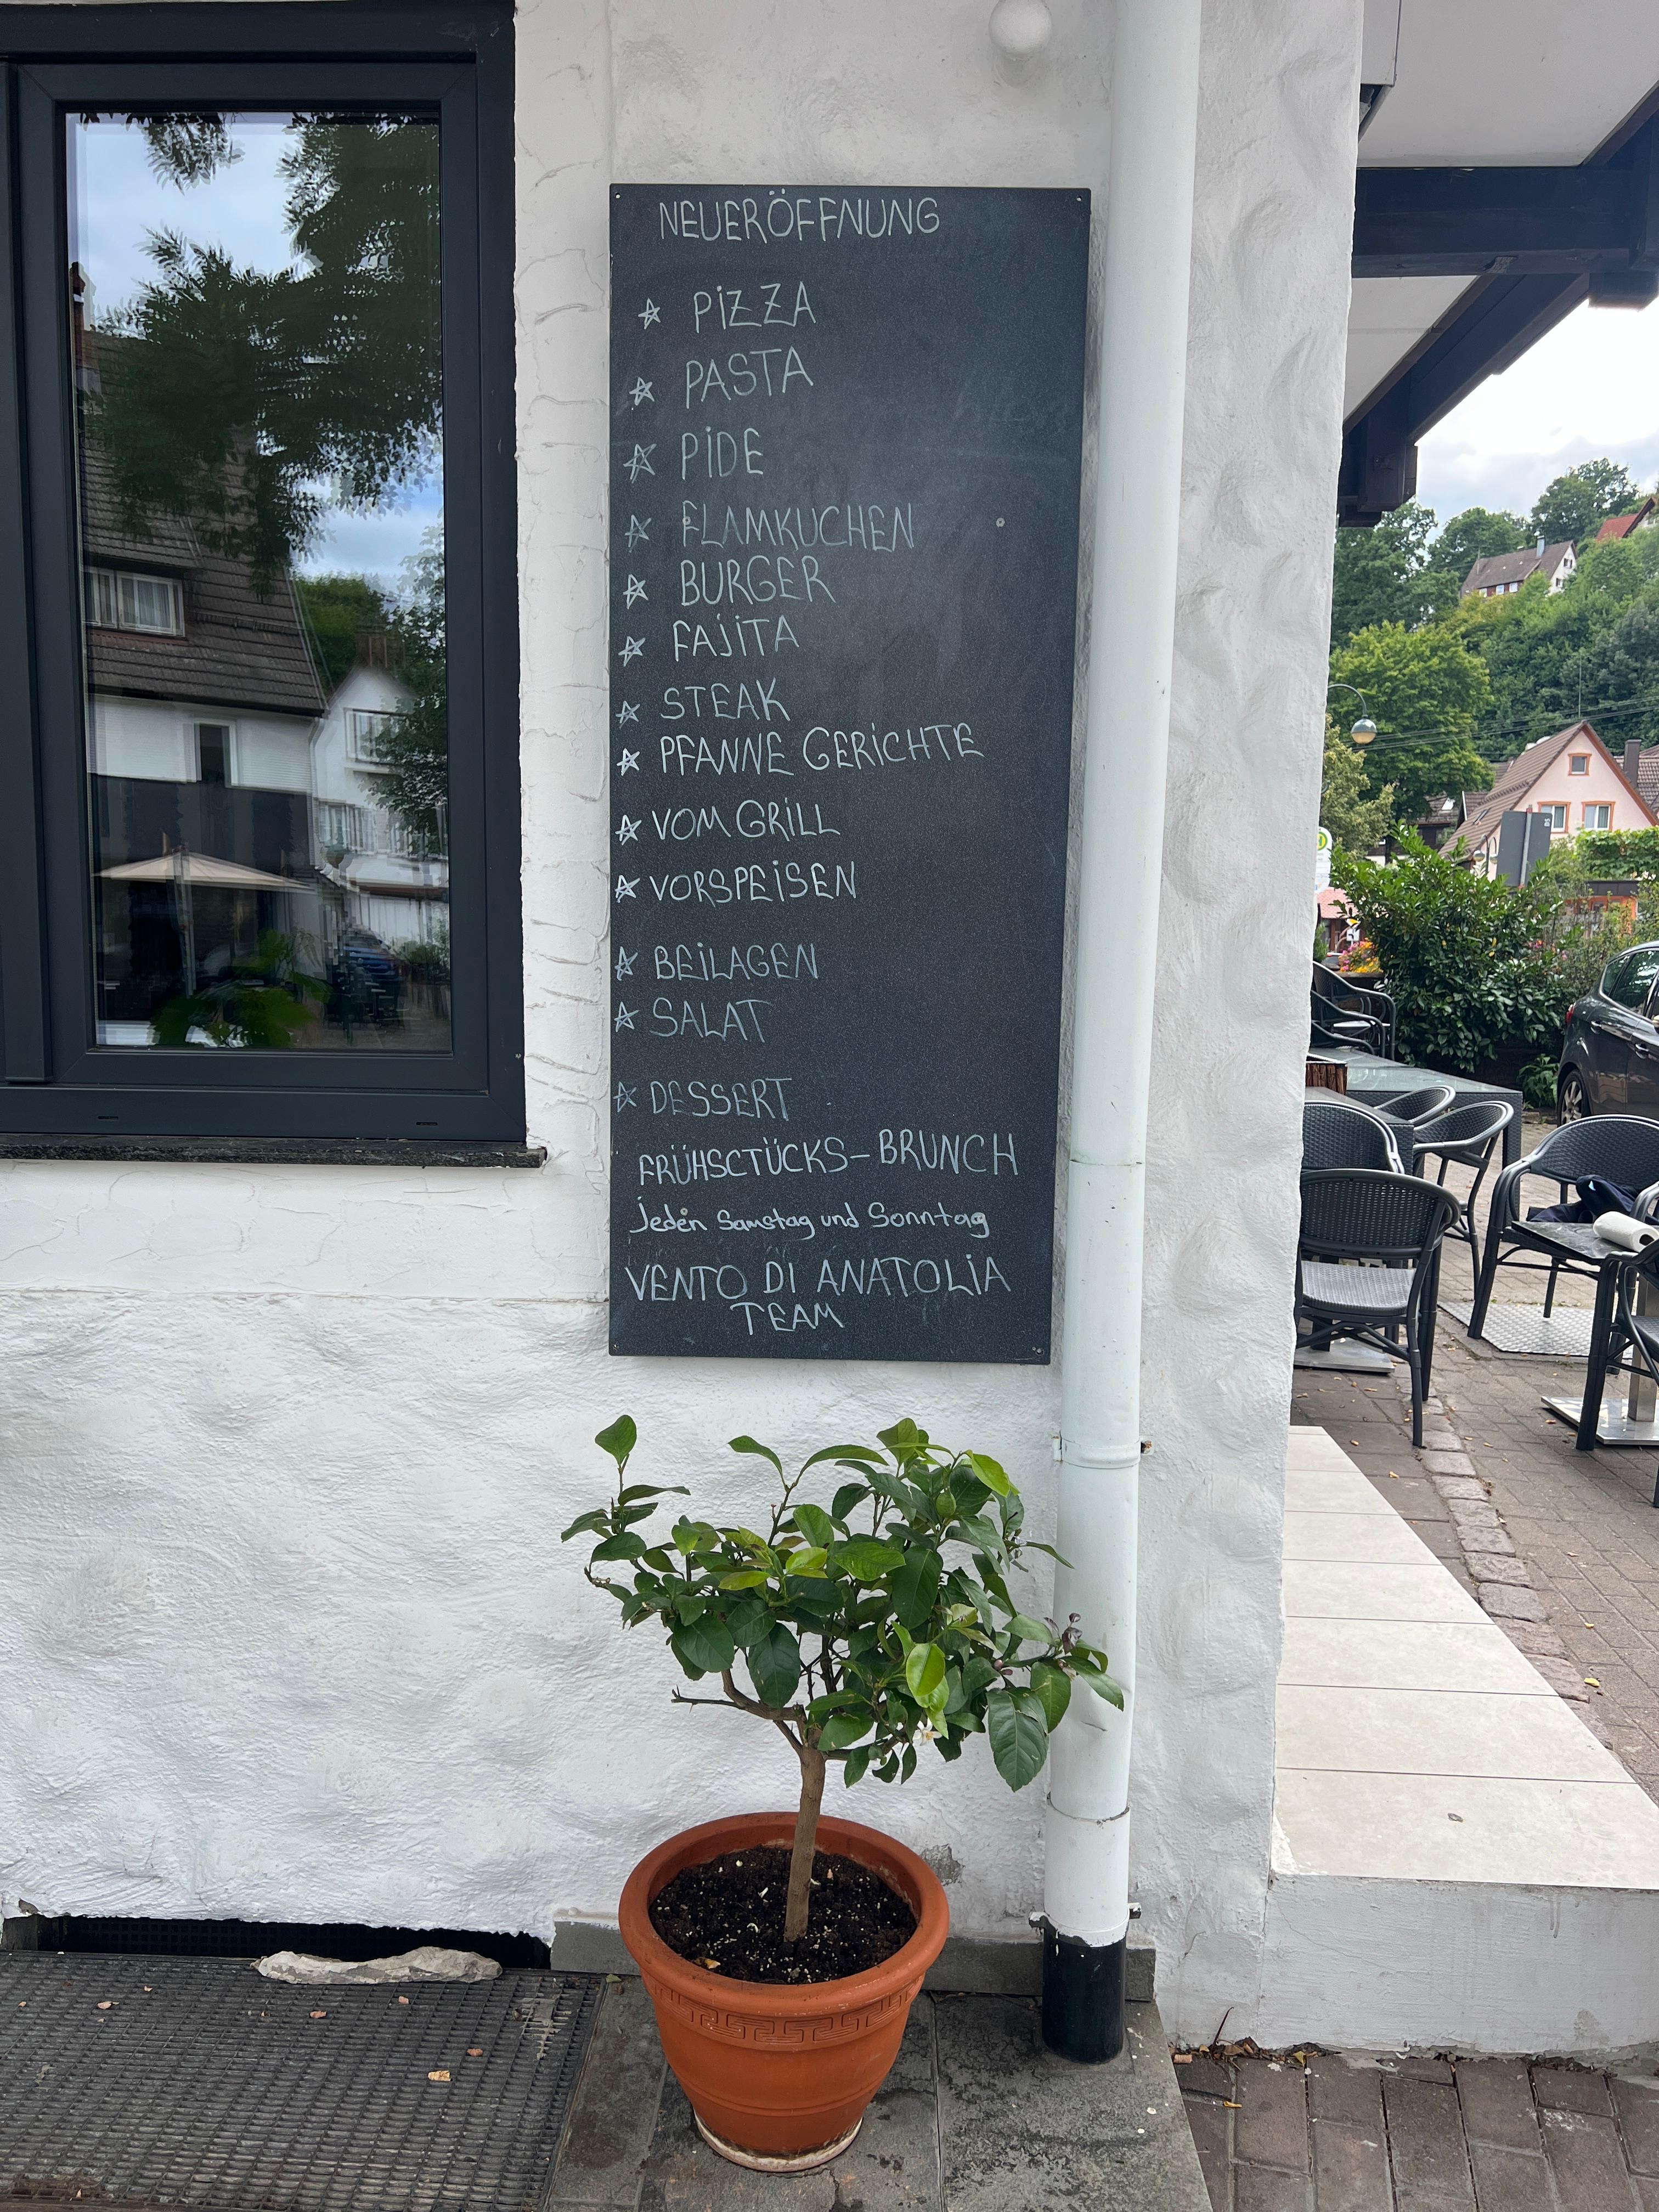 NEUERÖFFNUNG
PIZZA
PASTA
PIDE
FLAMKUCHEN
BURGER
FAJITA
STEAK
PFANNE GERICHTE
VOM GRILL
VORSPEISEN
BEILAGEN
SALAT
DESSERT
FRÜHSCTÜCKS-BRUNCH
Jeden Samstag und Sonntag
VENTO DI ANATOLIA
TEAM